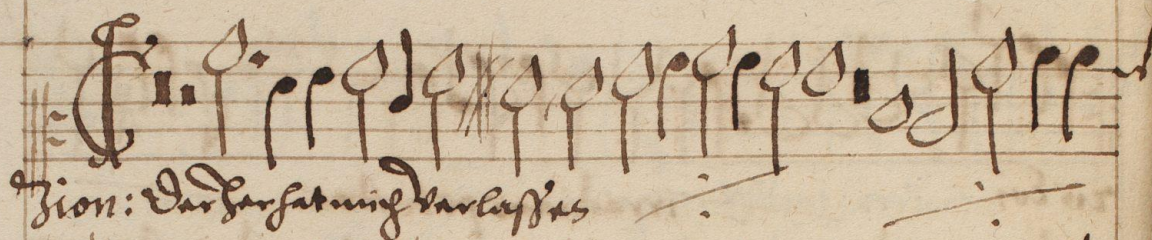 Zion: Der Herr hat mich verlassen